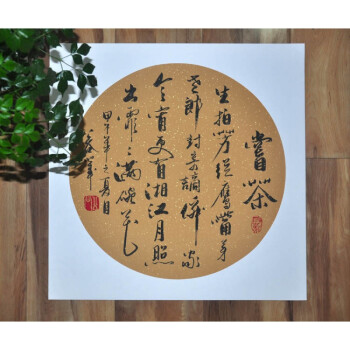 嘗茶
生拍芳從鷹嘴芽
老郎封寄謫僊家
今宵更有湘江月照
出霏〻滿碗花
甲午年之夏月